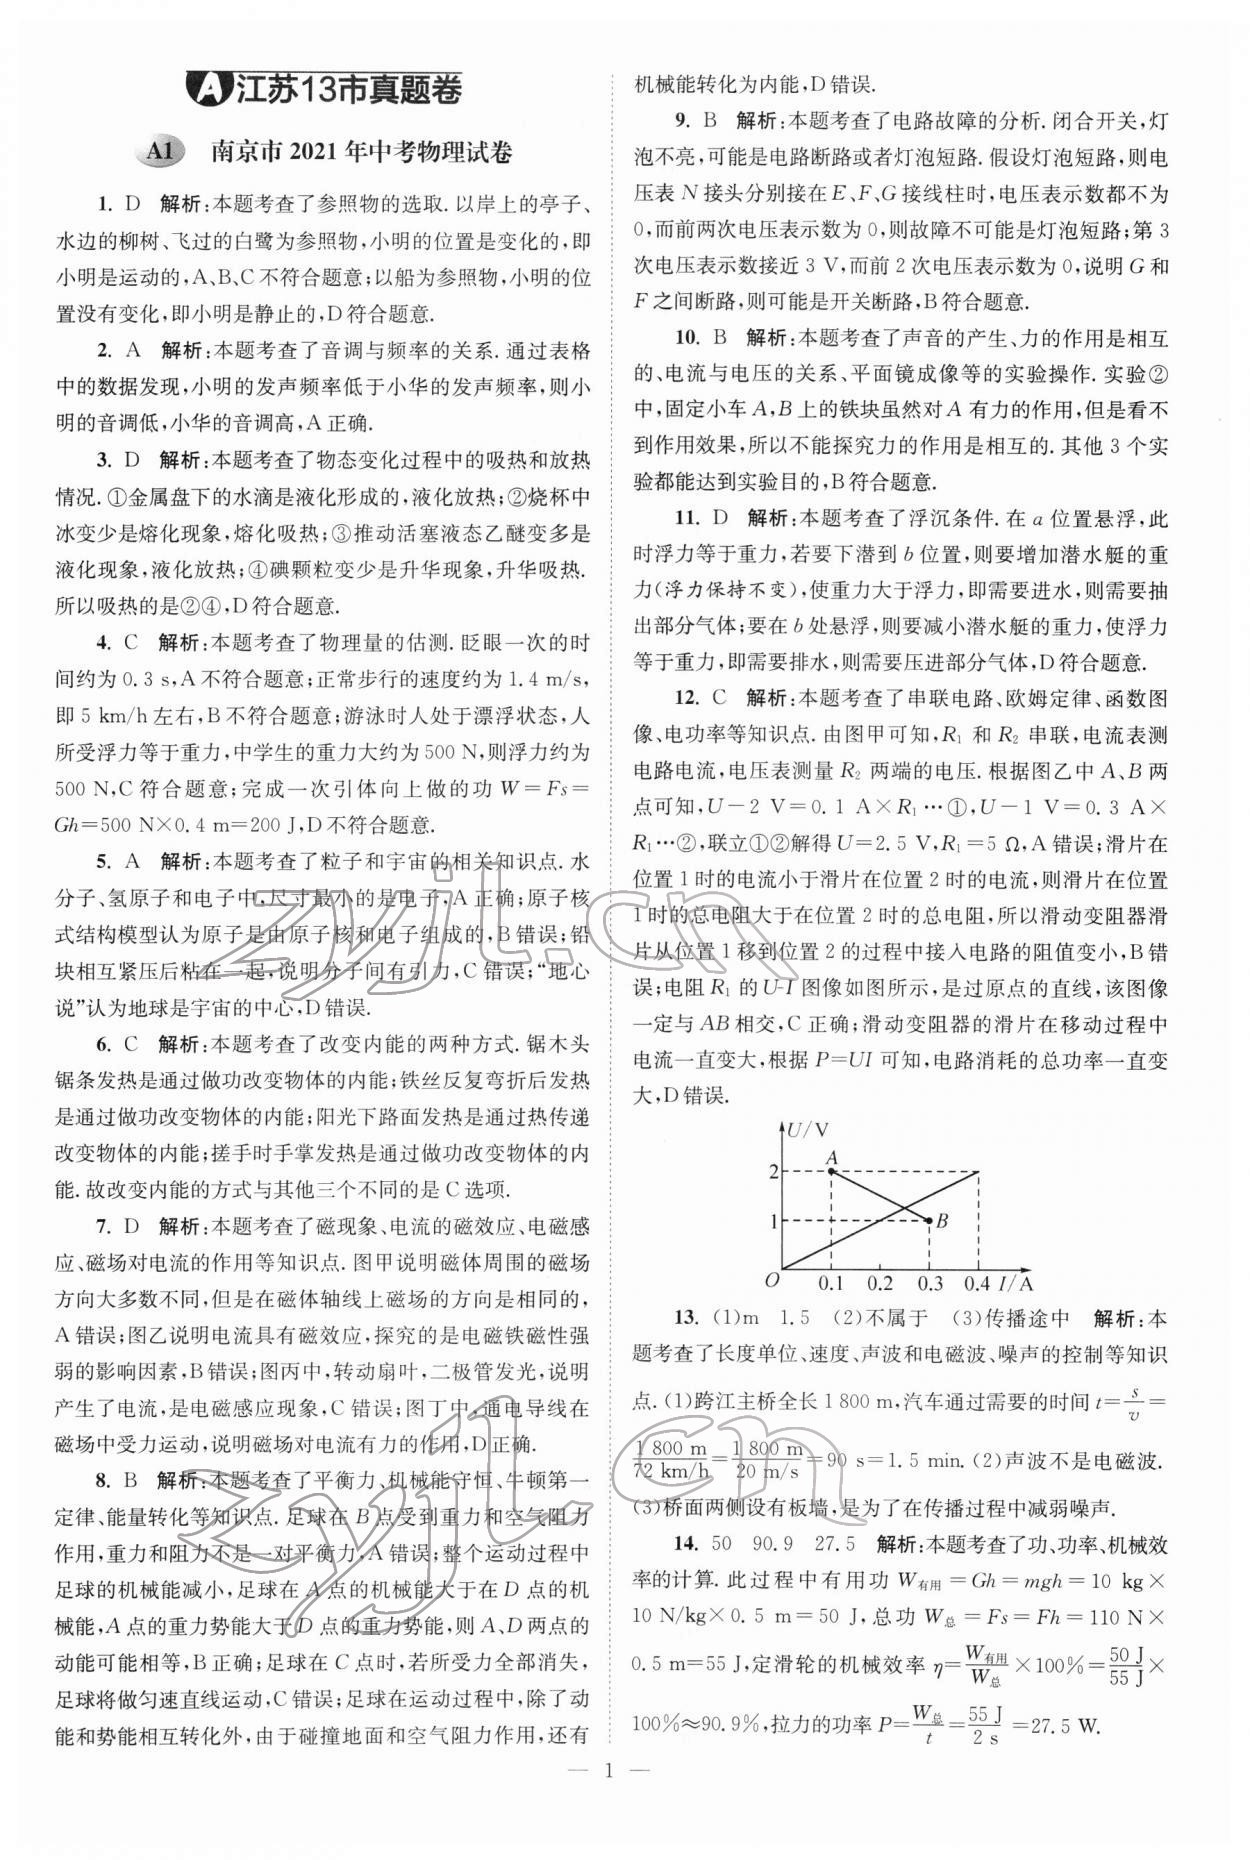 A 江苏13市真题卷
A1 南京市 2021 年中考物理试卷
1. D 解析:本题考查了参照物的选取. 以岸上的亭子、
水边的柳树、飞过的白鹭为参照物,小明的位置是变化的,即
小明是运动的,A、B、C不符合题意;以船为参照物,小明的位
置没有变化,即小明是静止的,D符合题意.
2. A 解析:本题考查了音调与频率的关系. 通过表格
中的数据发现,小明的发声频率低于小华的发声频率,则小
明的音调低,小华的音调高,A正确.
3. D 解析:本题考查了物态变化过程中的吸热和放热
情况. ①金属盘下的水滴是液化形成的,液化放热;②烧杯中
冰变少是熔化现象,熔化吸热;③推动活塞液态乙醚变多是
液化现象,液化放热;④碘颗粒变少是升华现象,升华吸热.
所以吸热的是②④,D符合题意.
4. C 解析:本题考查了物理量的估测. 眨眼一次的时
间约为 0.3 s,A不符合题意;正常步行的速度约为 1.4 m/s,
即 5 km/h左右,B不符合题意;游泳时人处于漂浮状态,人
所受浮力等于重力,中学生的重力大约为 500 N,则浮力约为
500 N,C符合题意;完成一次引体向上做的功 W＝Fs＝
Gh＝500 N×0.4 m＝200 J,D不符合题意.
5. A 解析:本题考查了粒子和宇宙的相关知识点. 水
分子、氢原子和电子中,尺寸最小的是电子,A正确;原子核
式结构模型认为原子是由原子核和电子组成的,B错误;铅
块相互紧压后粘在一起,说明分子间有引力,C错误;“地心
说”认为地球是宇宙的中心,D错误.
6. C 解析:本题考查了改变内能的两种方式. 锯木头
锯条发热是通过做功改变物体的内能;铁丝反复弯折后发热
是通过做功改变物体的内能;阳光下路面发热是通过热传递
改变物体的内能;搓手时手掌发热是通过做功改变物体的内
能. 故改变内能的方式与其他三个不同的是 C选项.
7. D 解析:本题考查了磁现象、电流的磁效应、电磁感
应、磁场对电流的作用等知识点. 图甲说明磁体周围的磁场
方向大多数不同,但是在磁体轴线上磁场的方向是相同的,
A错误;图乙说明电流具有磁效应,探究的是电磁铁磁性强
弱的影响因素,B错误;图丙中,转动扇叶,二极管发光,说明
产生了电流,是电磁感应现象,C错误;图丁中,通电导线在
磁场中受力运动,说明磁场对电流有力的作用,D正确.
8. B 解析:本题考查了平衡力、机械能守恒、牛顿第一
定律、能量转化等知识点. 足球在 B点受到重力和空气阻力
作用,重力和阻力不是一对平衡力,A错误;整个运动过程中
足球的机械能减小,足球在 A点的机械能大于在 D点的机
械能,A点的重力势能大于 D点的重力势能,则 A、D两点的
动能可能相等,B正确;足球在 C点时,若所受力全部消失,
足球将做匀速直线运动,C错误;足球在运动过程中,除了动
能和势能相互转化外,由于碰撞地面和空气阻力作用,还有
机械能转化为内能,D错误.
9. B 解析:本题考查了电路故障的分析. 闭合开关,灯
泡不亮,可能是电路断路或者灯泡短路. 假设灯泡短路,则电
压表 N接头分别接在 E、F、G接线柱时,电压表示数都不为
0,而前两次电压表示数为 0,则故障不可能是灯泡短路;第 3
次电压表示数接近 3 V,而前 2次电压表示数为 0,说明 G和
F之间断路,则可能是开关断路,B符合题意.
10. B 解析:本题考查了声音的产生、力的作用是相互
的、电流与电压的关系、平面镜成像等的实验操作. 实验②
中,固定小车 A,B上的铁块虽然对 A有力的作用,但是看不
到作用效果,所以不能探究力的作用是相互的. 其他 3个实
验都能达到实验目的,B符合题意.
11. D 解析:本题考查了浮沉条件. 在 a位置悬浮,此
时浮力等于重力,若要下潜到 b位置,则要增加潜水艇的重
力(浮力保持不变),使重力大于浮力,即需要进水,则需要抽
出部分气体;要在 b处悬浮,则要减小潜水艇的重力,使浮力
等于重力,即需要排水,则需要压进部分气体,D符合题意.
12. C 解析:本题考查了串联电路、欧姆定律、函数图
像、电功率等知识点. 由图甲可知,R₁和 R₂串联,电流表测
电路电流,电压表测量 R₂两端的电压. 根据图乙中 A、B两
点可知,U－2 V＝0.1 A×R₁…①,U－1 V＝0.3 A×
R₁…②,联立①②解得 U＝2.5 V,R₁＝5 Ω,A错误;滑片在
位置 1时的电流小于滑片在位置 2时的电流,则滑片在位置
1时的总电阻大于在位置 2时的总电阻,所以滑动变阻器滑
片从位置 1移到位置 2的过程中接入电路的阻值变小,B错
误;电阻 R₁的 U-I图像如图所示,是过原点的直线,该图像
一定与 AB相交,C正确;滑动变阻器的滑片在移动过程中
电流一直变大,根据 P＝UI可知,电路消耗的总功率一直变
大,D错误.
U/V
A
2
1
B
O 0.1 0.2 0.3 0.4 I/A
13. (1)m 1.5 (2)不属于 (3)传播途中 解析:本
题考查了长度单位、速度、声波和电磁波、噪声的控制等知识
点. (1)跨江主桥全长 1 800 m,汽车通过需要的时间 t＝s/v＝
1 800 m/72 km/h＝1 800 m/20 m/s＝90 s＝1.5 min. (2)声波不是电磁波.
(3)桥面两侧设有板墙,是为了在传播过程中减弱噪声.
14. 50 90.9 27.5 解析:本题考查了功、功率、机械效
率的计算. 此过程中有用功 W有用＝Gh＝mgh＝10 kg×
10 N/kg×0.5 m＝50 J,总功 W总＝Fs＝Fh＝110 N×
0.5 m＝55 J,定滑轮的机械效率 η＝W有用/W总×100%＝50 J/55 J×
100%≈90.9%,拉力的功率 P＝W总/t＝55 J/2 s＝27.5 W.
— 1 —
zyjl.cn
zyjl.cn